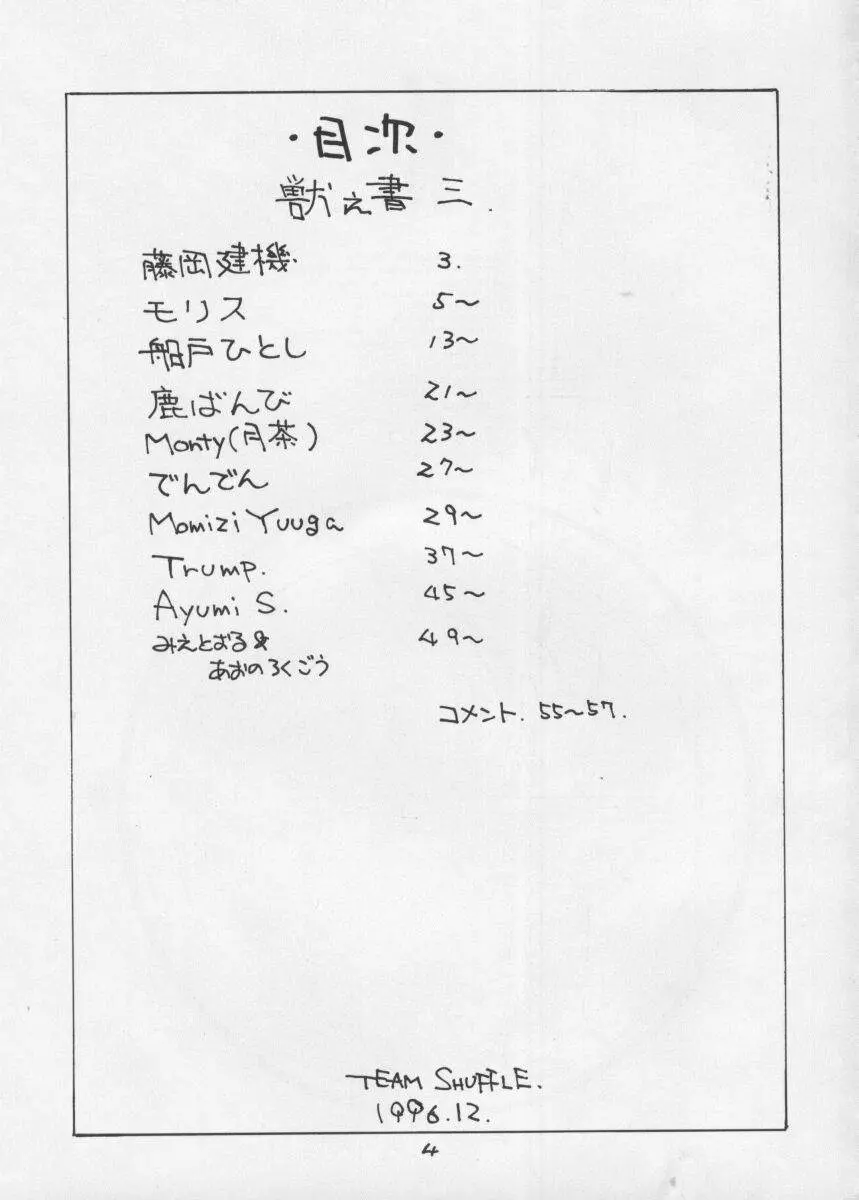 ・目次・
獣え書 三.
藤岡建機. 3.
モリス 5〜
船戸ひとし 13〜
鹿ばんび 21〜
Monty(月茶) 23〜
でんでん 27〜
Momizi Yuuga 29〜
Trump. 37〜
Ayumi S. 45〜
みえとおる& 49〜
あおのろくごう
コメント. 55〜57.
TEAM SHUFFLE.
1996.12.
4